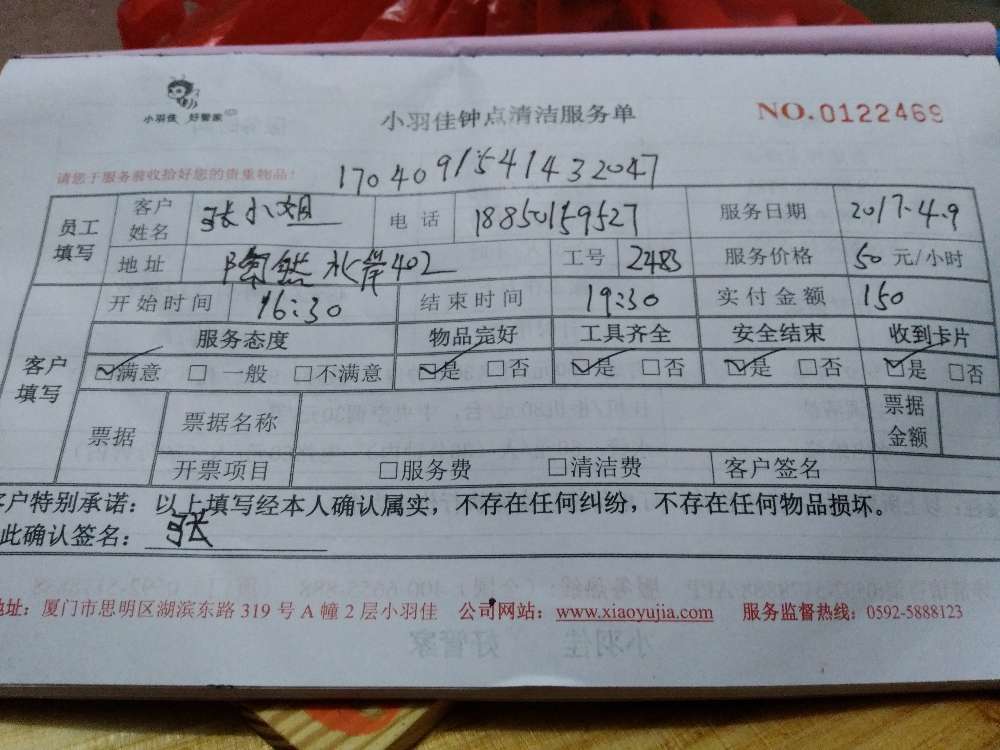 小羽佳 好管家
小羽佳钟点清洁服务单
NO.0122469
请您于服务前收拾好您的贵重物品!
170409154143 2047
员工填写 客户姓名 张小姐 电话 18850159527 服务日期 2017.4.9
地址 陶然水岸402 工号 2483 服务价格 50 元/小时
客户填写 开始时间 16:30 结束时间 19:30 实付金额 150
服务态度 物品完好 工具齐全 安全结束 收到卡片
☑满意 □ 一般 □不满意 ☑是 □否 ☑是 □否 ☑是 □否 ☑是 □否
票据 票据名称 票据金额
开票项目 □服务费 □清洁费 客户签名
客户特别承诺：以上填写经本人确认属实，不存在任何纠纷，不存在任何物品损坏。
此确认签名：张
地址：厦门市思明区湖滨东路 319 号 A 幢 2 层小羽佳 公司网站：www.xiaoyujia.com 服务监督热线：0592-5888123